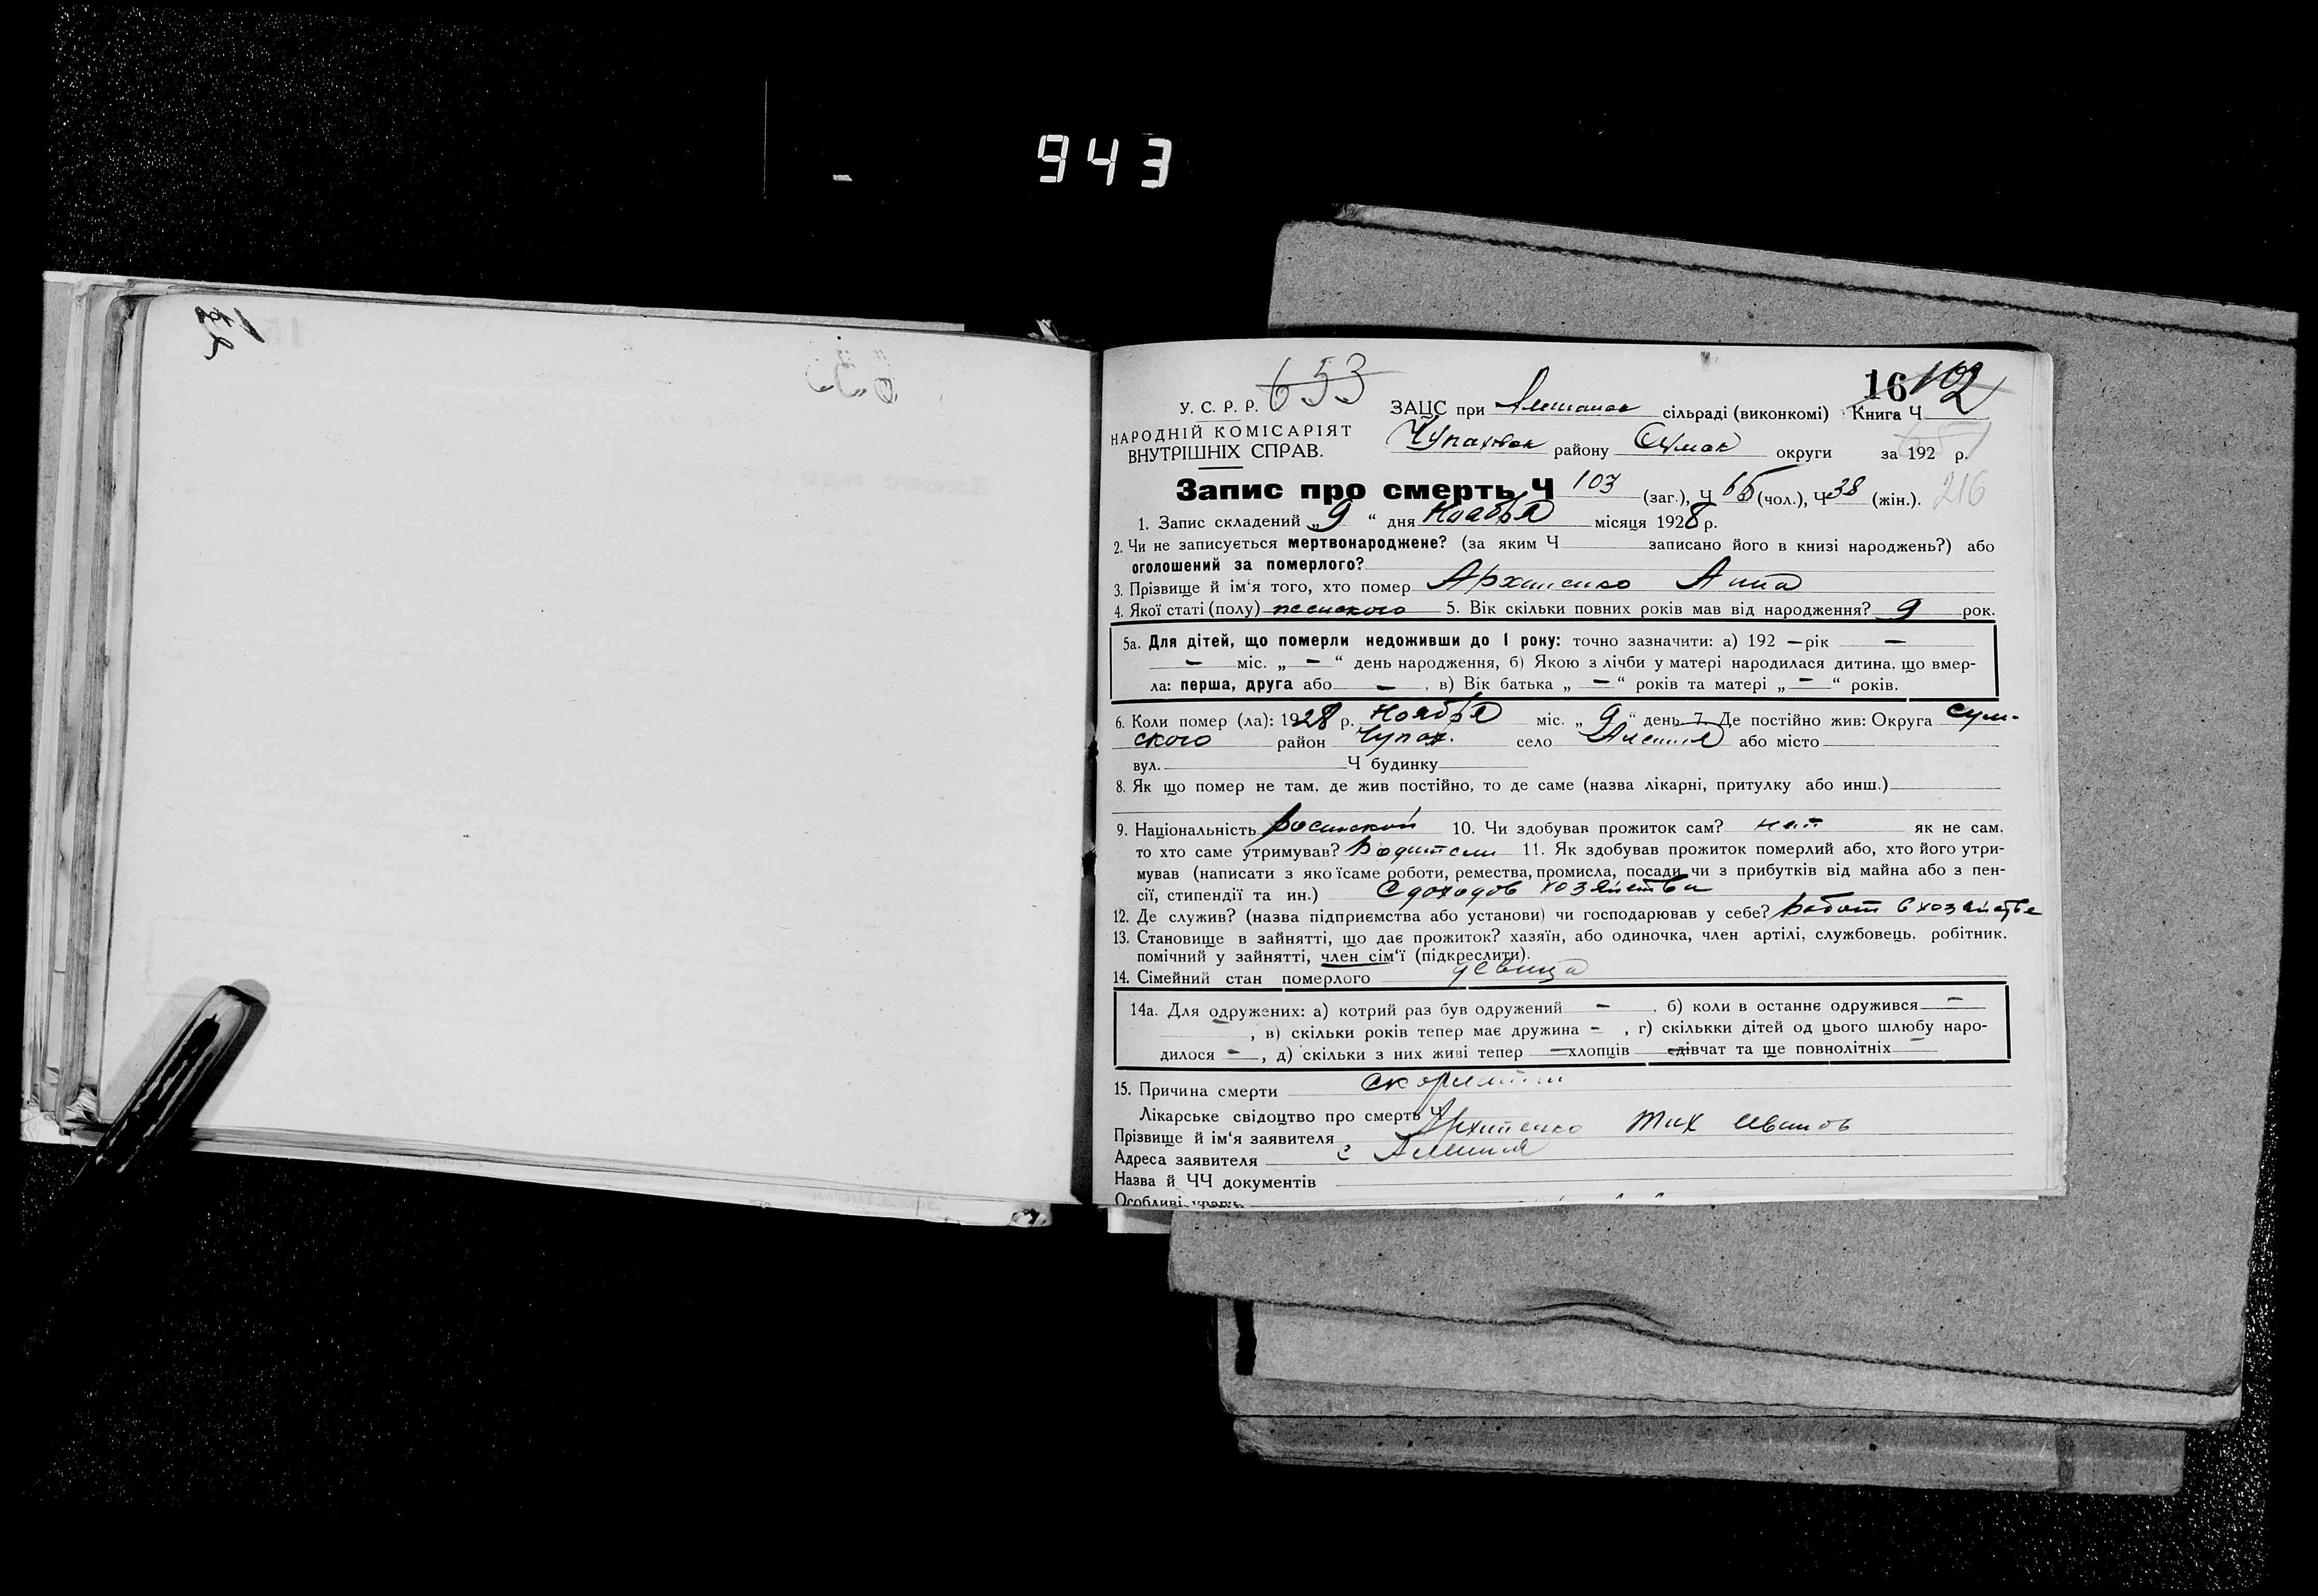 943
653
16 102
У. С. Р. Р.
НАРОДНІЙ КОМІСАРІЯТ
ВНУТРІШНІХ СПРАВ.
ЗАЦС при сільраді (виконкомі) Книга Ч
Чупаховск району Сумск округи за 192 р.
216
Запис про смерть Ч 103 (заг.), Ч 65 (чол.), Ч 38 (жін.).
1. Запис складений „ 9 “ дня Ноября місяця 1928 р.
2. Чи не записується мертвонароджене? (за яким Ч записано його в книзі народжень?) або
оголошений за померлого?
3. Прізвище й ім‘я того, хто помер Архипенко Анна
4. Якої статі (полу) женского 5. Вік скільки повних років мав від народження? 9 рок.
5а. Для дітей, що померли недоживши до 1 року: точно зазначити: а) 192 – рік –
– міс. „ – “ день народження, б) Якою з лічби у матері народилася дитина, що вмер-
ла: перша, друга або – , в) Вік батька „ – “ років та матері „ – “ років.
6. Коли помер (ла): 1928 р. Ноября міс. „ 9 “ день 7. Де постійно жив: Округа Сум-
ского район Чупах. село Алешня або місто
вул. Ч будинку
8. Як що помер не там, де жив постійно, то де саме (назва лікарні, притулку або инш.)
9. Національність Росийской 10. Чи здобував прожиток сам? нет як не сам,
то хто саме утримував? Родители 11. Як здобував прожиток померлий або, хто його утри-
мував (написати з якоїсаме роботи, ремества, промисла, посади чи з прибутків від майна або з пен-
сії, стипендії та ин.) С доходов хозяйства
12. Де служив? (назва підприємства або установи) чи господарював у себе? Работ в хозяйстве
13. Становище в зайнятті, що дає прожиток? хазяїн, або одиночка, член артілі, службовець, робітник,
помічний у зайнятті, член сім‘ї (підкреслити).
14. Сімейний стан померлого девица
14а. Для одружених: а) котрий раз був одружений – , б) коли в останнє одружився –
– , в) скільки років тепер має дружина – , г) скількки дітей од цього шлюбу наро-
дилося – , д) скільки з них живі тепер – хлопців – дівчат та ще повнолітніх –
15. Причина смерти скорлатина
Лікарське свідоцтво про смерть Ч
Прізвище й ім‘я заявителя Архипенко Тих Иванов
Адреса заявителя с Алешня
Назва й ЧЧ документів
Особливі уваги